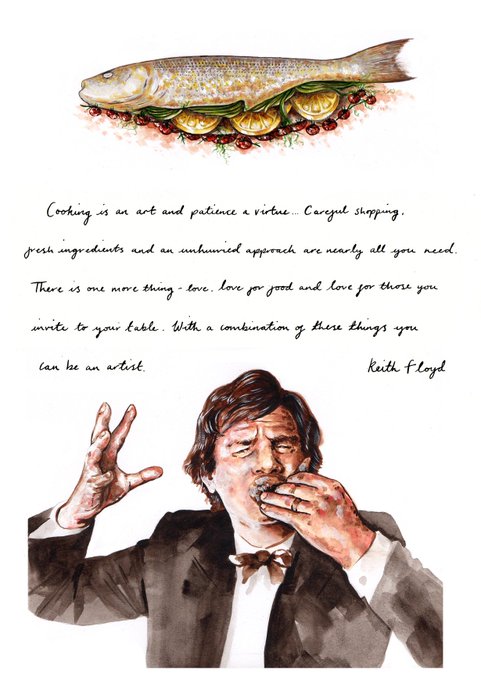 Cooking is an art and patience a virtue... Careful shopping,
fresh ingredients and an unhurried approach are nearly all you need.
There is one more thing - love. love for food and love for those you
invite to your table. With a combination of these things you
can be an artist. Keith Floyd